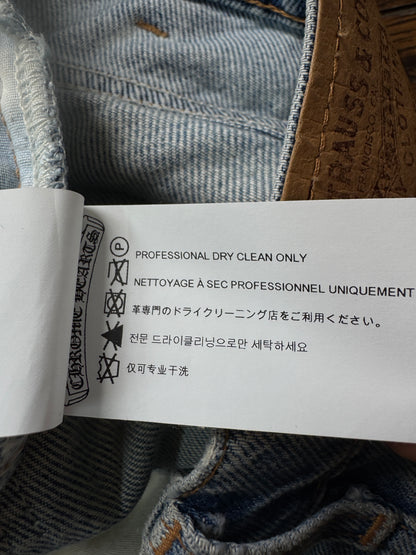 RAUSS & CO
CHROME HEARTS
P
PROFESSIONAL DRY CLEAN ONLY
NETTOYAGE À SEC PROFESSIONNEL UNIQUEMENT
革専門のドライクリーニング店をご利用ください。
전문 드라이클리닝으로만 세탁하세요
仅可专业干洗